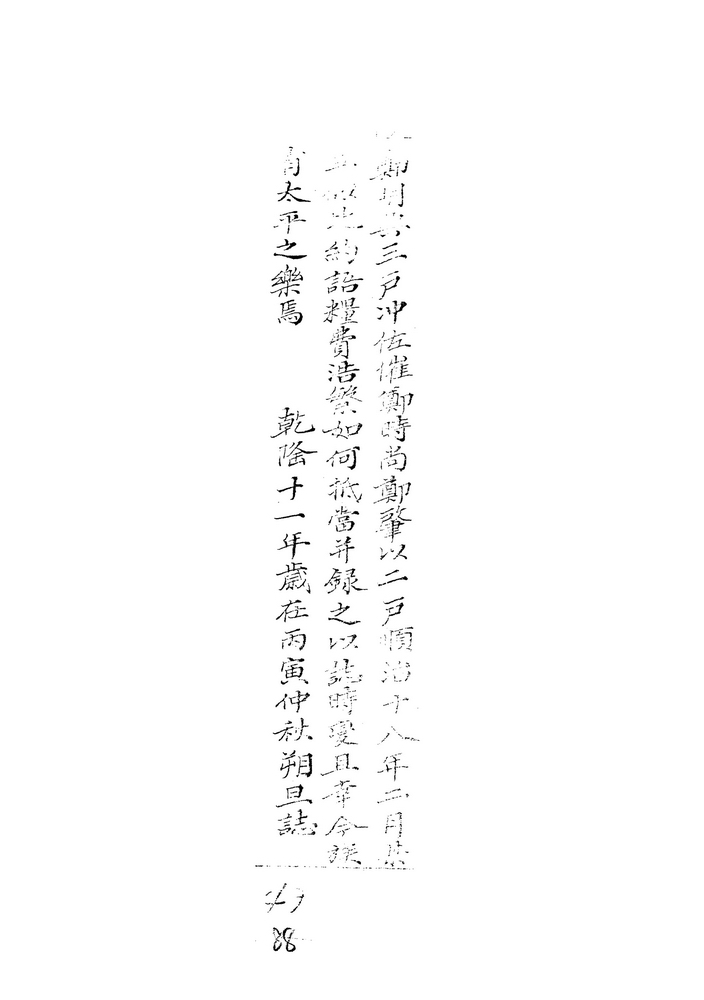 鄭明三戶冲佐催鄭時尚鄭肇以二戶順治十八年二月共
立此約語糧費浩繁如何抵當并録之以誌時變且幸今
有太平之樂焉 乾隆十一年歲在丙寅仲秋朔旦誌
88